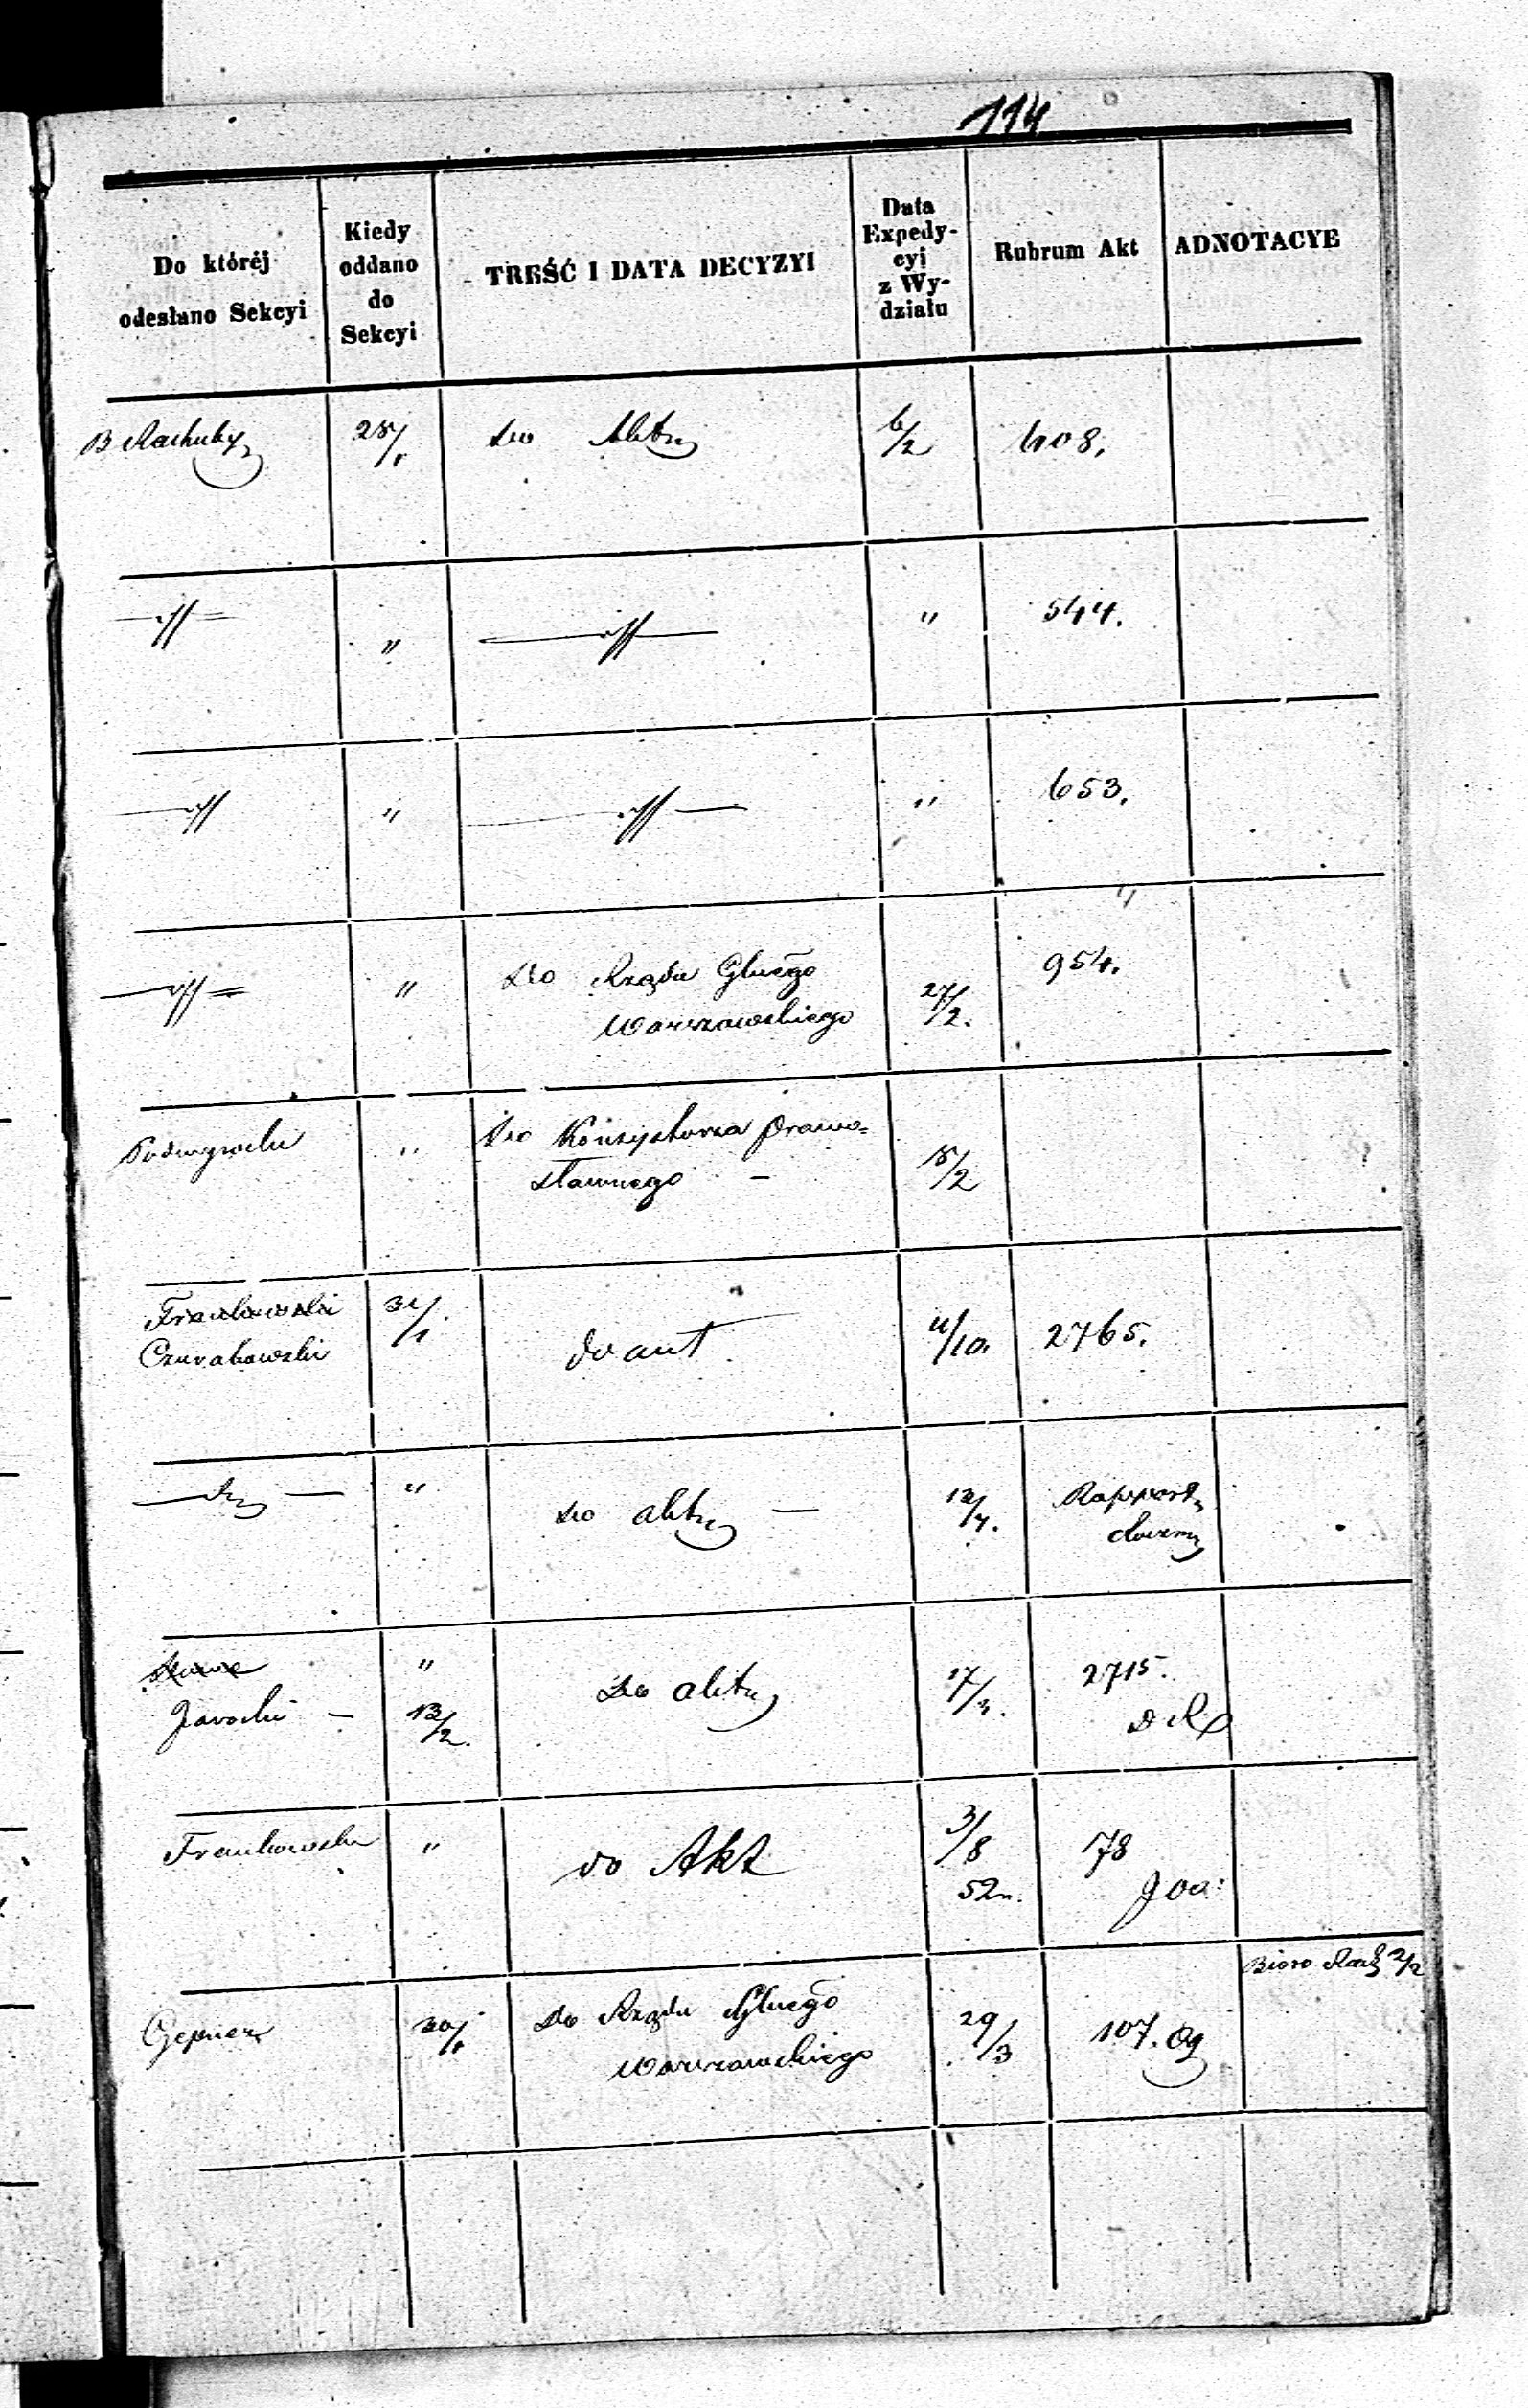 114
Do któréj odesłano Sekcyi
Kiedy oddano do Sekcyi
TREŚĆ I DATA DECYZYI
Data Expedycyi z Wydziału
Rubrum Akt
ADNOTACYE
B Rachuby 28/1 do Aktu 6/2 608.
" " " 544.
" " " 653.
" " do Rządu Glnego 954.
Warszawskiego 27/2.
" do Konsystorza Prawo=
sławnego - 15/2
Frankowski 31/1
Czurakowski do akt 11/10. 2765.
" do aktu - 13/7. Rapporta
" do aktu 17/3. 2715.
Jarocki - 13/2.
Frankowski " do Akt 3/8 78
52
Bióro Rach 2/2
Gepner 30/1 do Rządu Glnego 29/3 107. Og
Warszawskiego